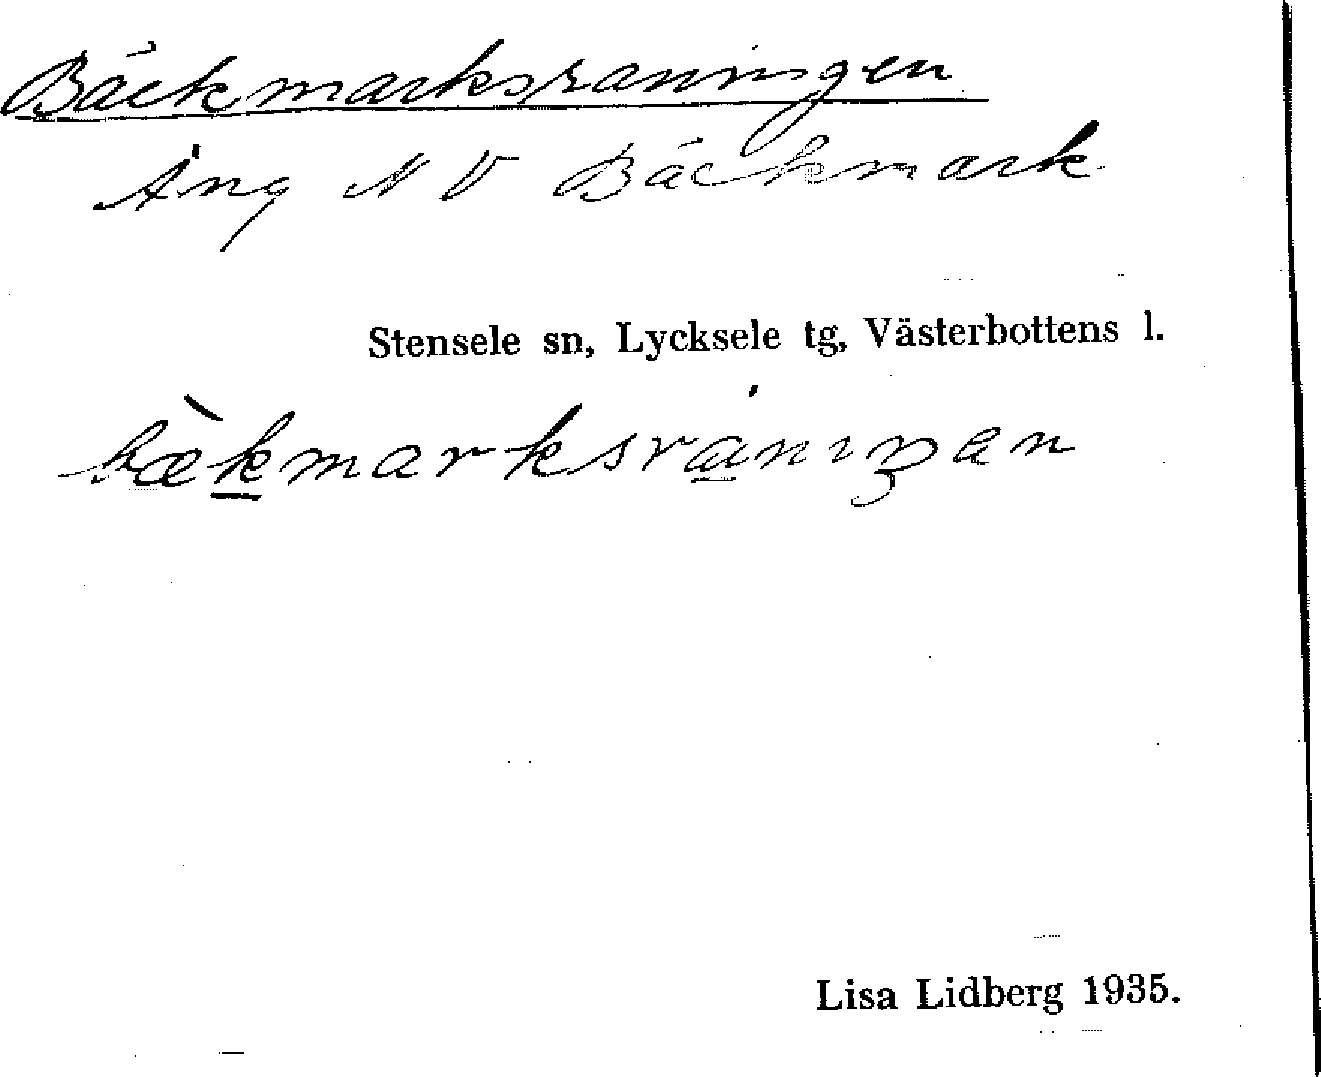 Bäckmarksraningen
Äng N V Bäckmark
Stensele sn, Lycksele tg, Västerbottens l.
bækmarksranıŋan
Lisa Lidberg 1935.